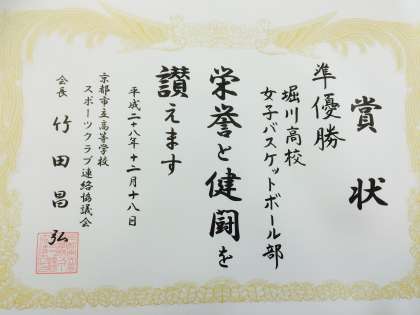 賞状
準優勝
堀川高校
女子バスケットボール部
栄誉と健闘を
讃えます
平成二十八年十二月十八日
京都市立高等学校
スポーツクラブ連絡協議会
会長 竹田昌弘